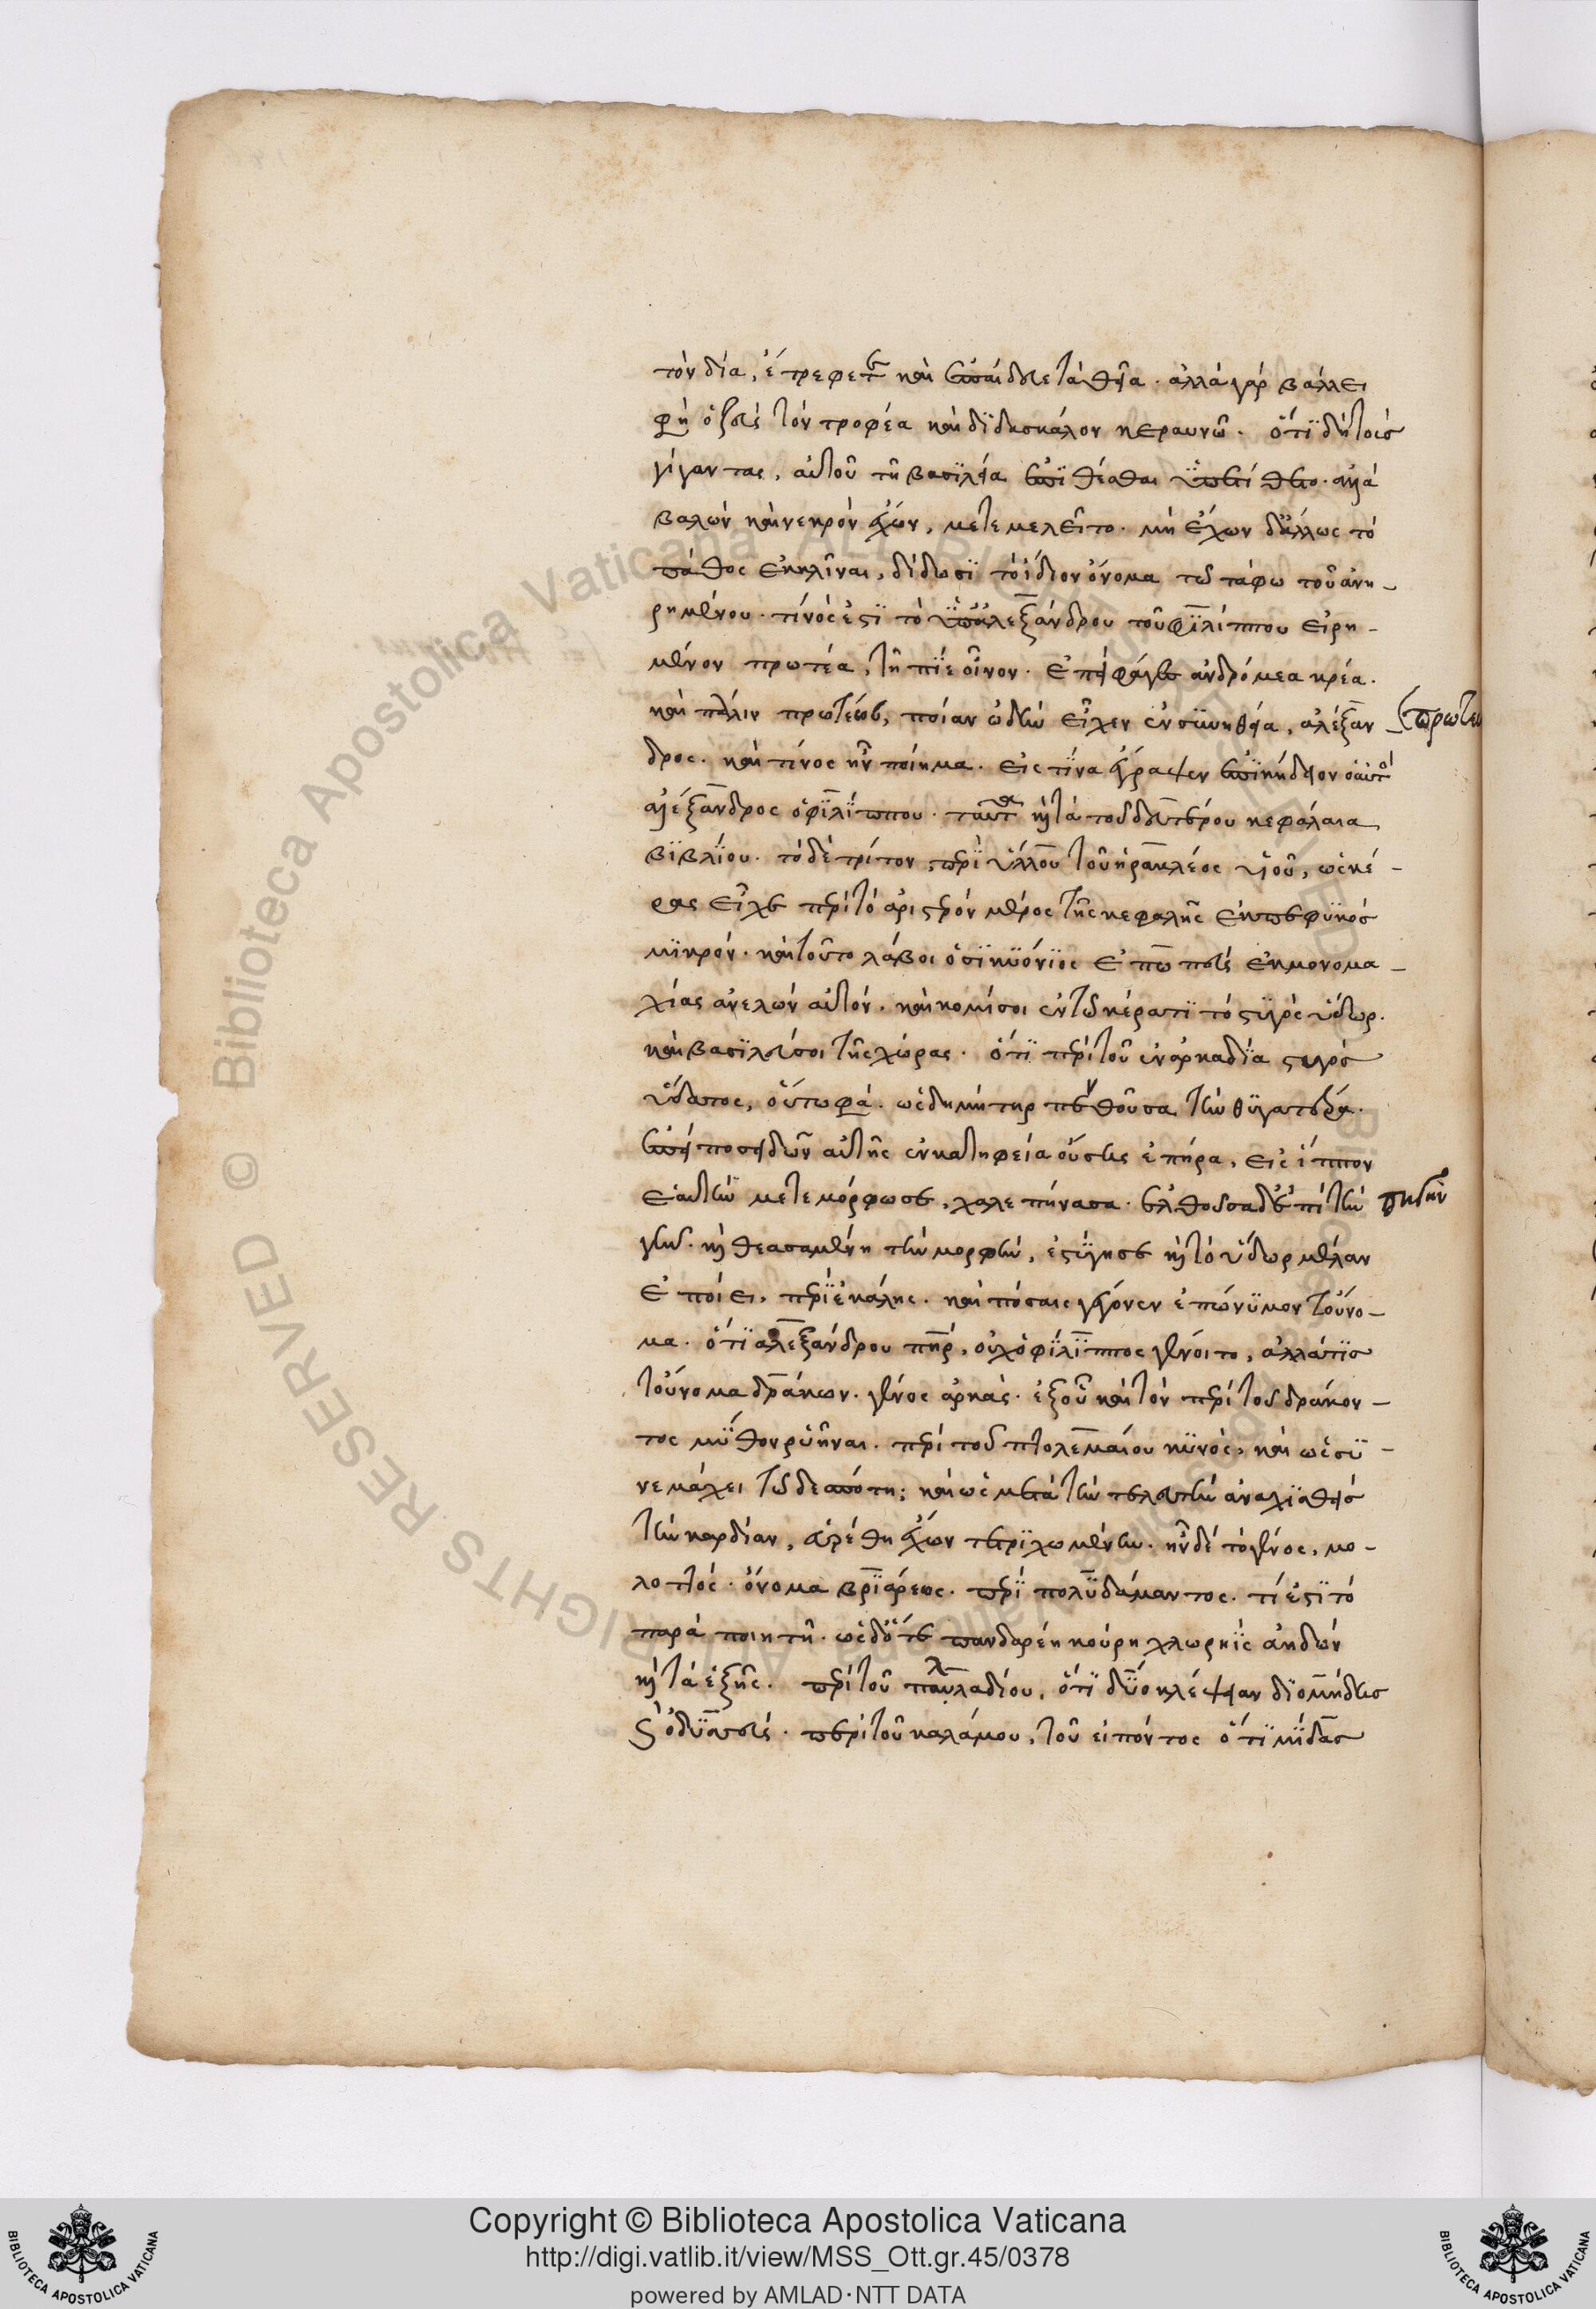 τὸν δία, ἔτρεφέ τε καὶ ἐπαίδευε τὰ θεῖα. ἀλλὰ γὰρ βάλλει
φη ὁ ζεὺς τὸν τροφέα καὶ διδάσκαλον κεραυνῶ. ὅτι δὴ τοὺς
γίγαντας, αὐτοῦ τῇ βασιλεία ἐπιθέσθαι ὑπετίθετο. ἀλλὰ
βαλὼν καὶ νεκρὸν ἔχων, μετεμελεῖτο. μὴ ἔχων δ' ἄλλως τὸ
πάθος ἐκκλῖναι, δίδωσι τὸ ἴδιον ὄνομα τῶ τάφω τοῦ ἀνη-
ρημένου. τίνός ἐστι τὸ ὑπὸ ἀλεξάνδρου τοῦ φιλίππου εἰρη-
μένον πρωτέα, τῆ πίε οἶνον. ἐπεὶ φάγες ἀνδρόμεα κρέα.
καὶ πάλιν πρωτέως, ποίαν ὠδὴν εἶχεν ἐν συνηθεία, ἀλέξαν-
(πρωτευ
δρος. καὶ τίνος ἦν ποίημα. εἰς τίνα ἔγραψεν ἐπικήδειον ὁ αὐτὸς
ἀλέξανδρος ὁ φιλίππου. ταῦτα καὶ τὰ τοῦ δευτέρου κεφάλαια
βιβλίου. τὸ δὲ τρίτον, περὶ ὕλλου τοῦ ἡρακλέος υἱοῦ, ὡς κέ-
ρας εἶχε περὶ τὸ ἀριστερὸν μέρος τῆς κεφαλῆς ἐκπεφυκὸς
μικρόν. καὶ τοῦτο λάβοι ὁ σικυόνιος ἐπωπεὺς ἐκ μονομα-
χίας ἀνελὼν αὐτόν. καὶ κομίσοι ἐν τῶ κέρατι τὸ στυγὸς ὕδωρ.
καὶ βασιλεύσοι τῆς χώρας. ὅτι περὶ τοῦ ἐν ἀρκαδία στυγὸς
ὕδατος, οὕτω φα. ὡς δημήτηρ πενθοῦσα τὴν θυγατέρα.
ἐπεὶ ποσειδῶν αὐτῆς ἐν κατηφεία οὔσης ἐπήρα, εἰς ἵππον
ἑαυτὴν μετεμόρφωσε, χαλεπήνασα. ἐλθοῦσα δὲ ἐπὶ τὴν
πηγὴν
γην. καὶ θεασαμένη τὴν μορφὴν, ἐστύγησε καὶ τὸ ὕδωρ μέλαν
ἐποίει. περὶ ἑκάλης. καὶ πόσαις γέγονεν ἐπώνυμον τοὔνο-
μα. ὅτι ἀλεξάνδρου πηρ, οὐχ ὁ φίλιππος γένοιτο, ἀλλά τις
τοὔνομα δράκων. γένος ἀρκάς. ἐξ οὗ καὶ τὸν περὶ τοῦ δράκον-
τος μῦθον ῥυῆναι. περὶ τοῦ πτολεμαίου κυνὸς, καὶ ὡς συ-
νεμάχει τῶ δεσπότη; καὶ ὡς μετὰ τὴν τελευτὴν ἀναλυθεὶς
τὴν καρδίαν, εὑρέθη ἔχων τετριχωμένην. ἦν δὲ τὸ γένος, μο-
λοττός. ὄνομα βριάρεως. περὶ πολυδάμαντος. τί ἐστι τὸ
παρὰ ποιητῆ. ὡς δ' ὅτε πανδαρέη κούρη χλωρηῒς ἀηδών
καὶ τὰ ἑξῆς. περὶ τοῦ παλλαδίου, ὅτι δύο κλέψαιαν διομήδης
καὶ ὀδυσσεύς. περὶ τοῦ καλάμου, τοῦ εἰπόντος ὅτι μίδας
Copyright © Biblioteca Apostolica Vaticana
http://digi.vatlib.it/view/MSS_Ott.gr.45/0378
powered by AMLAD·NTT DATA